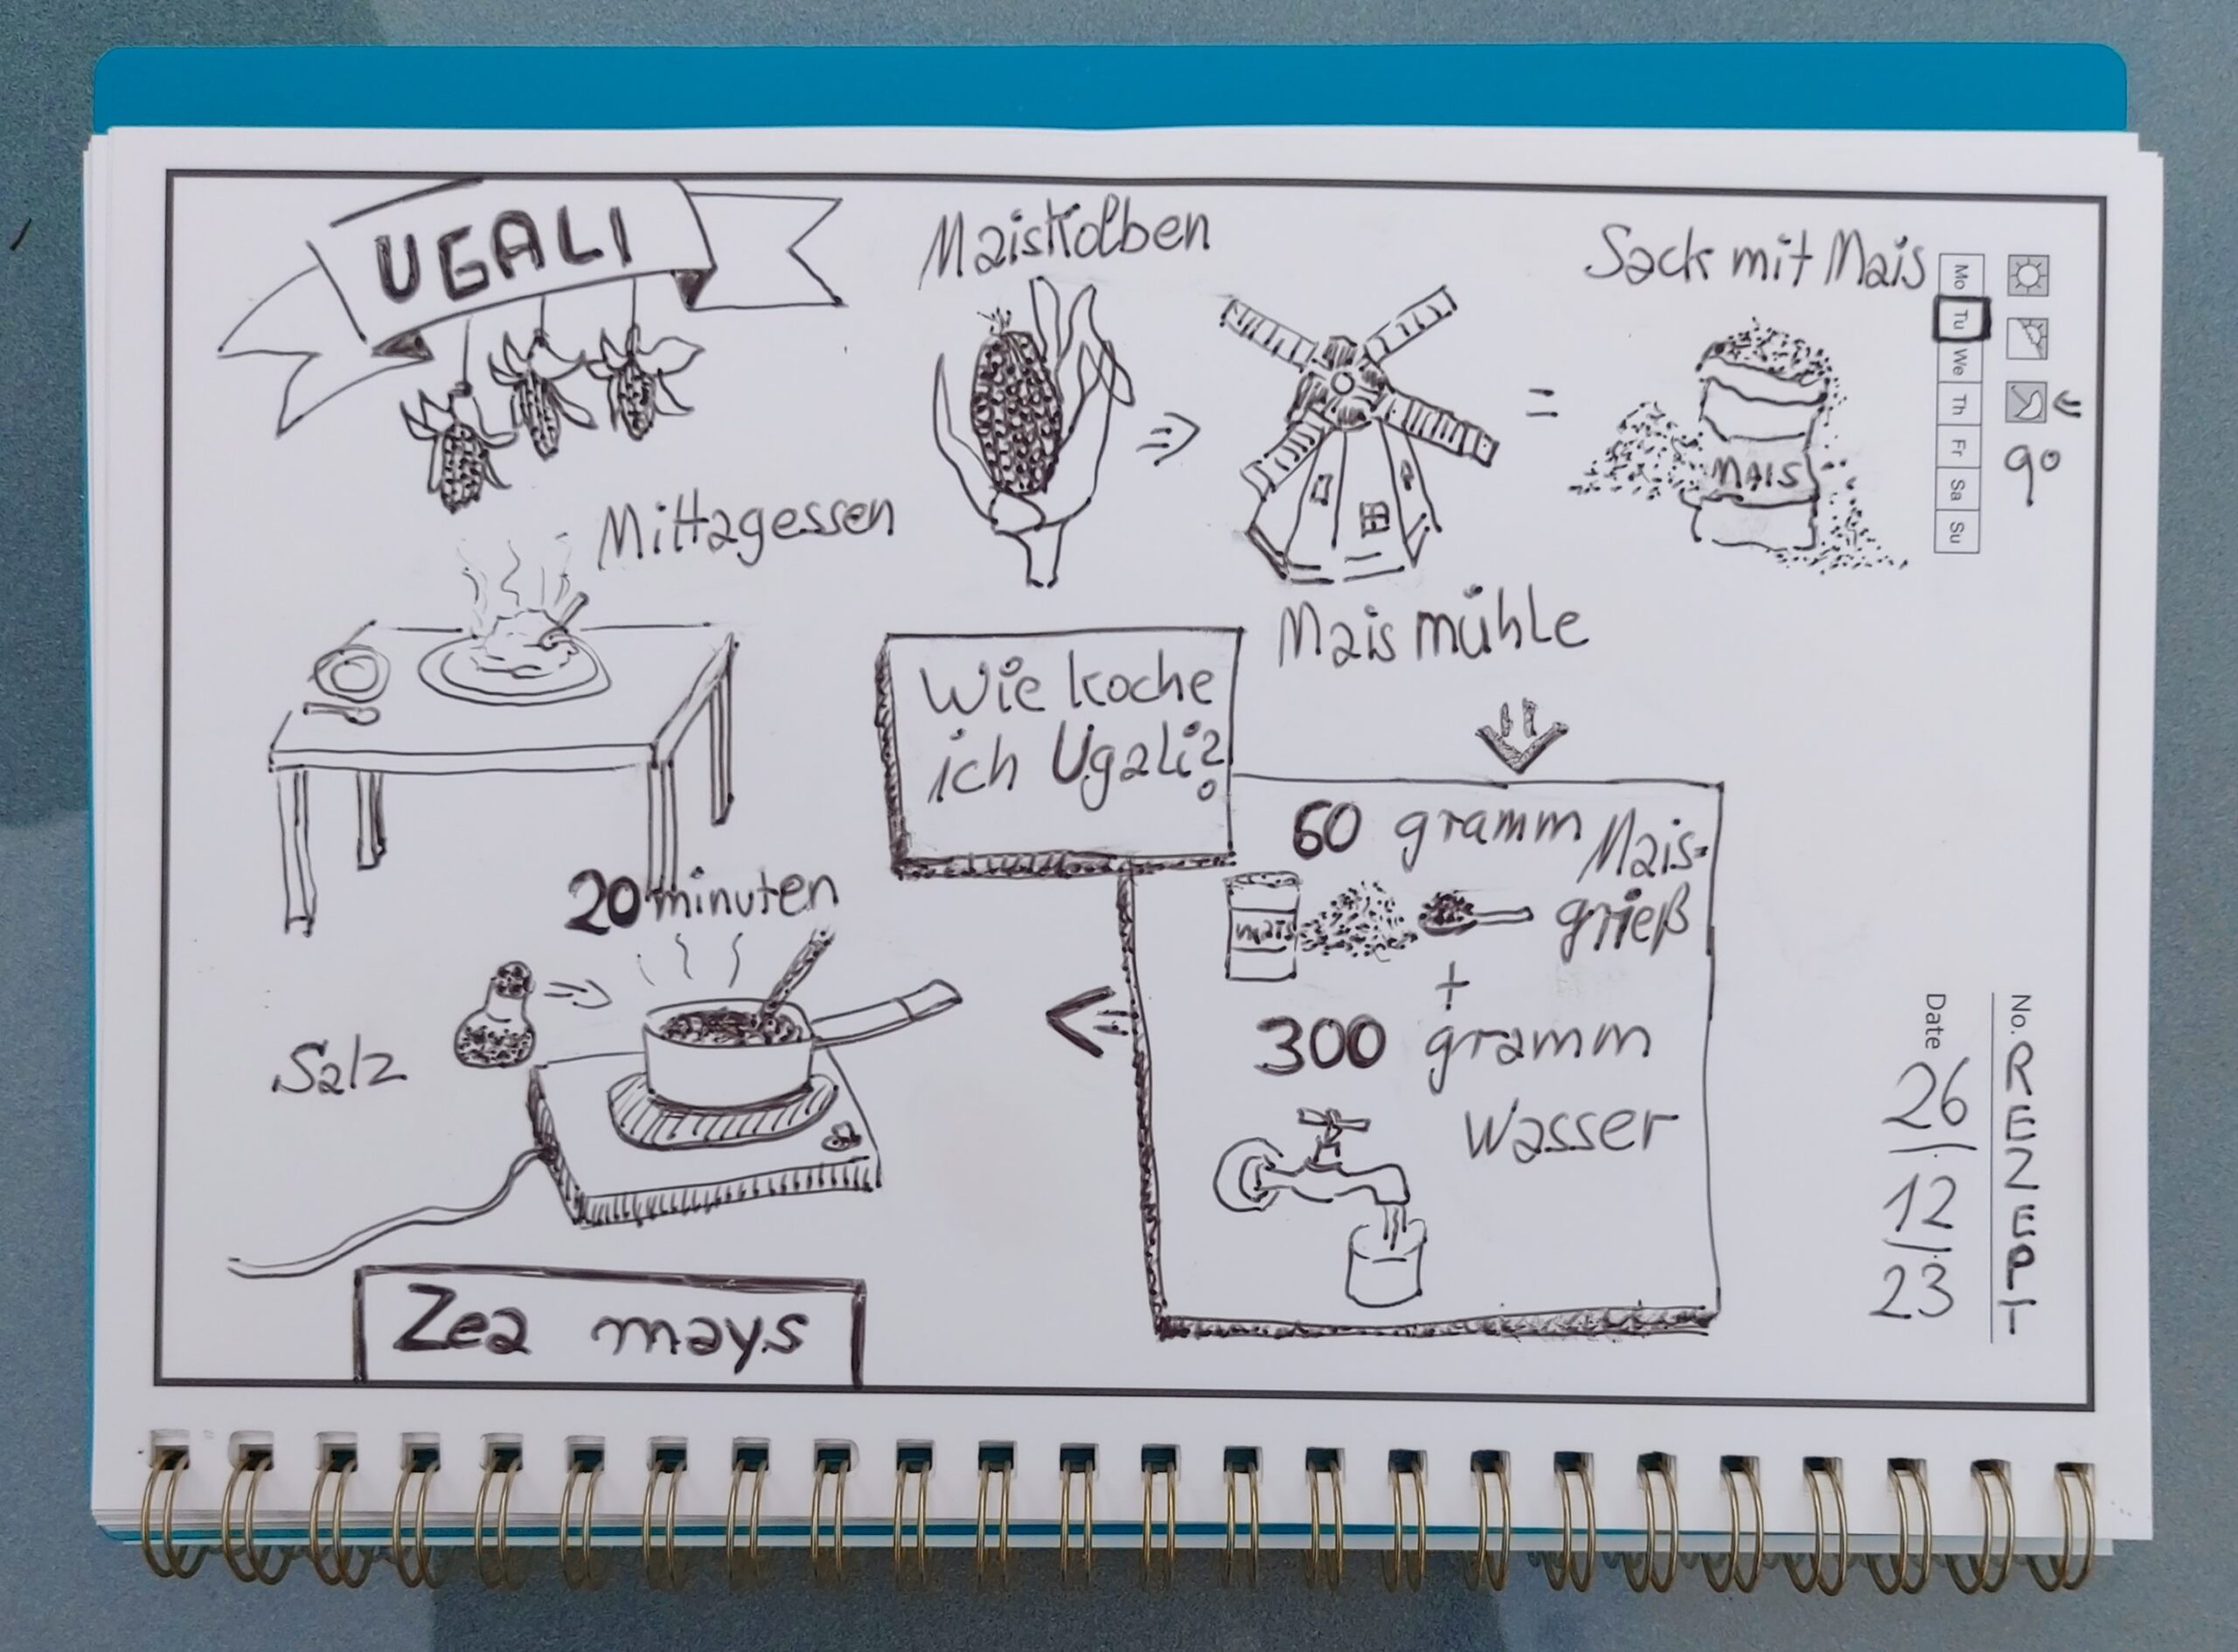 UGALI
Maiskolben
Sack mit Mais
MAIS
Mittagessen
Maismühle
Wie koche
ich Ugali?
60 gramm Mais-
grieß
mais
+
300 gramm
Wasser
20 minuten
Salz
Zea mays
Mo
Tu
We
Th
Fr
Sa
Su
9°
No. REZEPT
Date 26/12/23
=